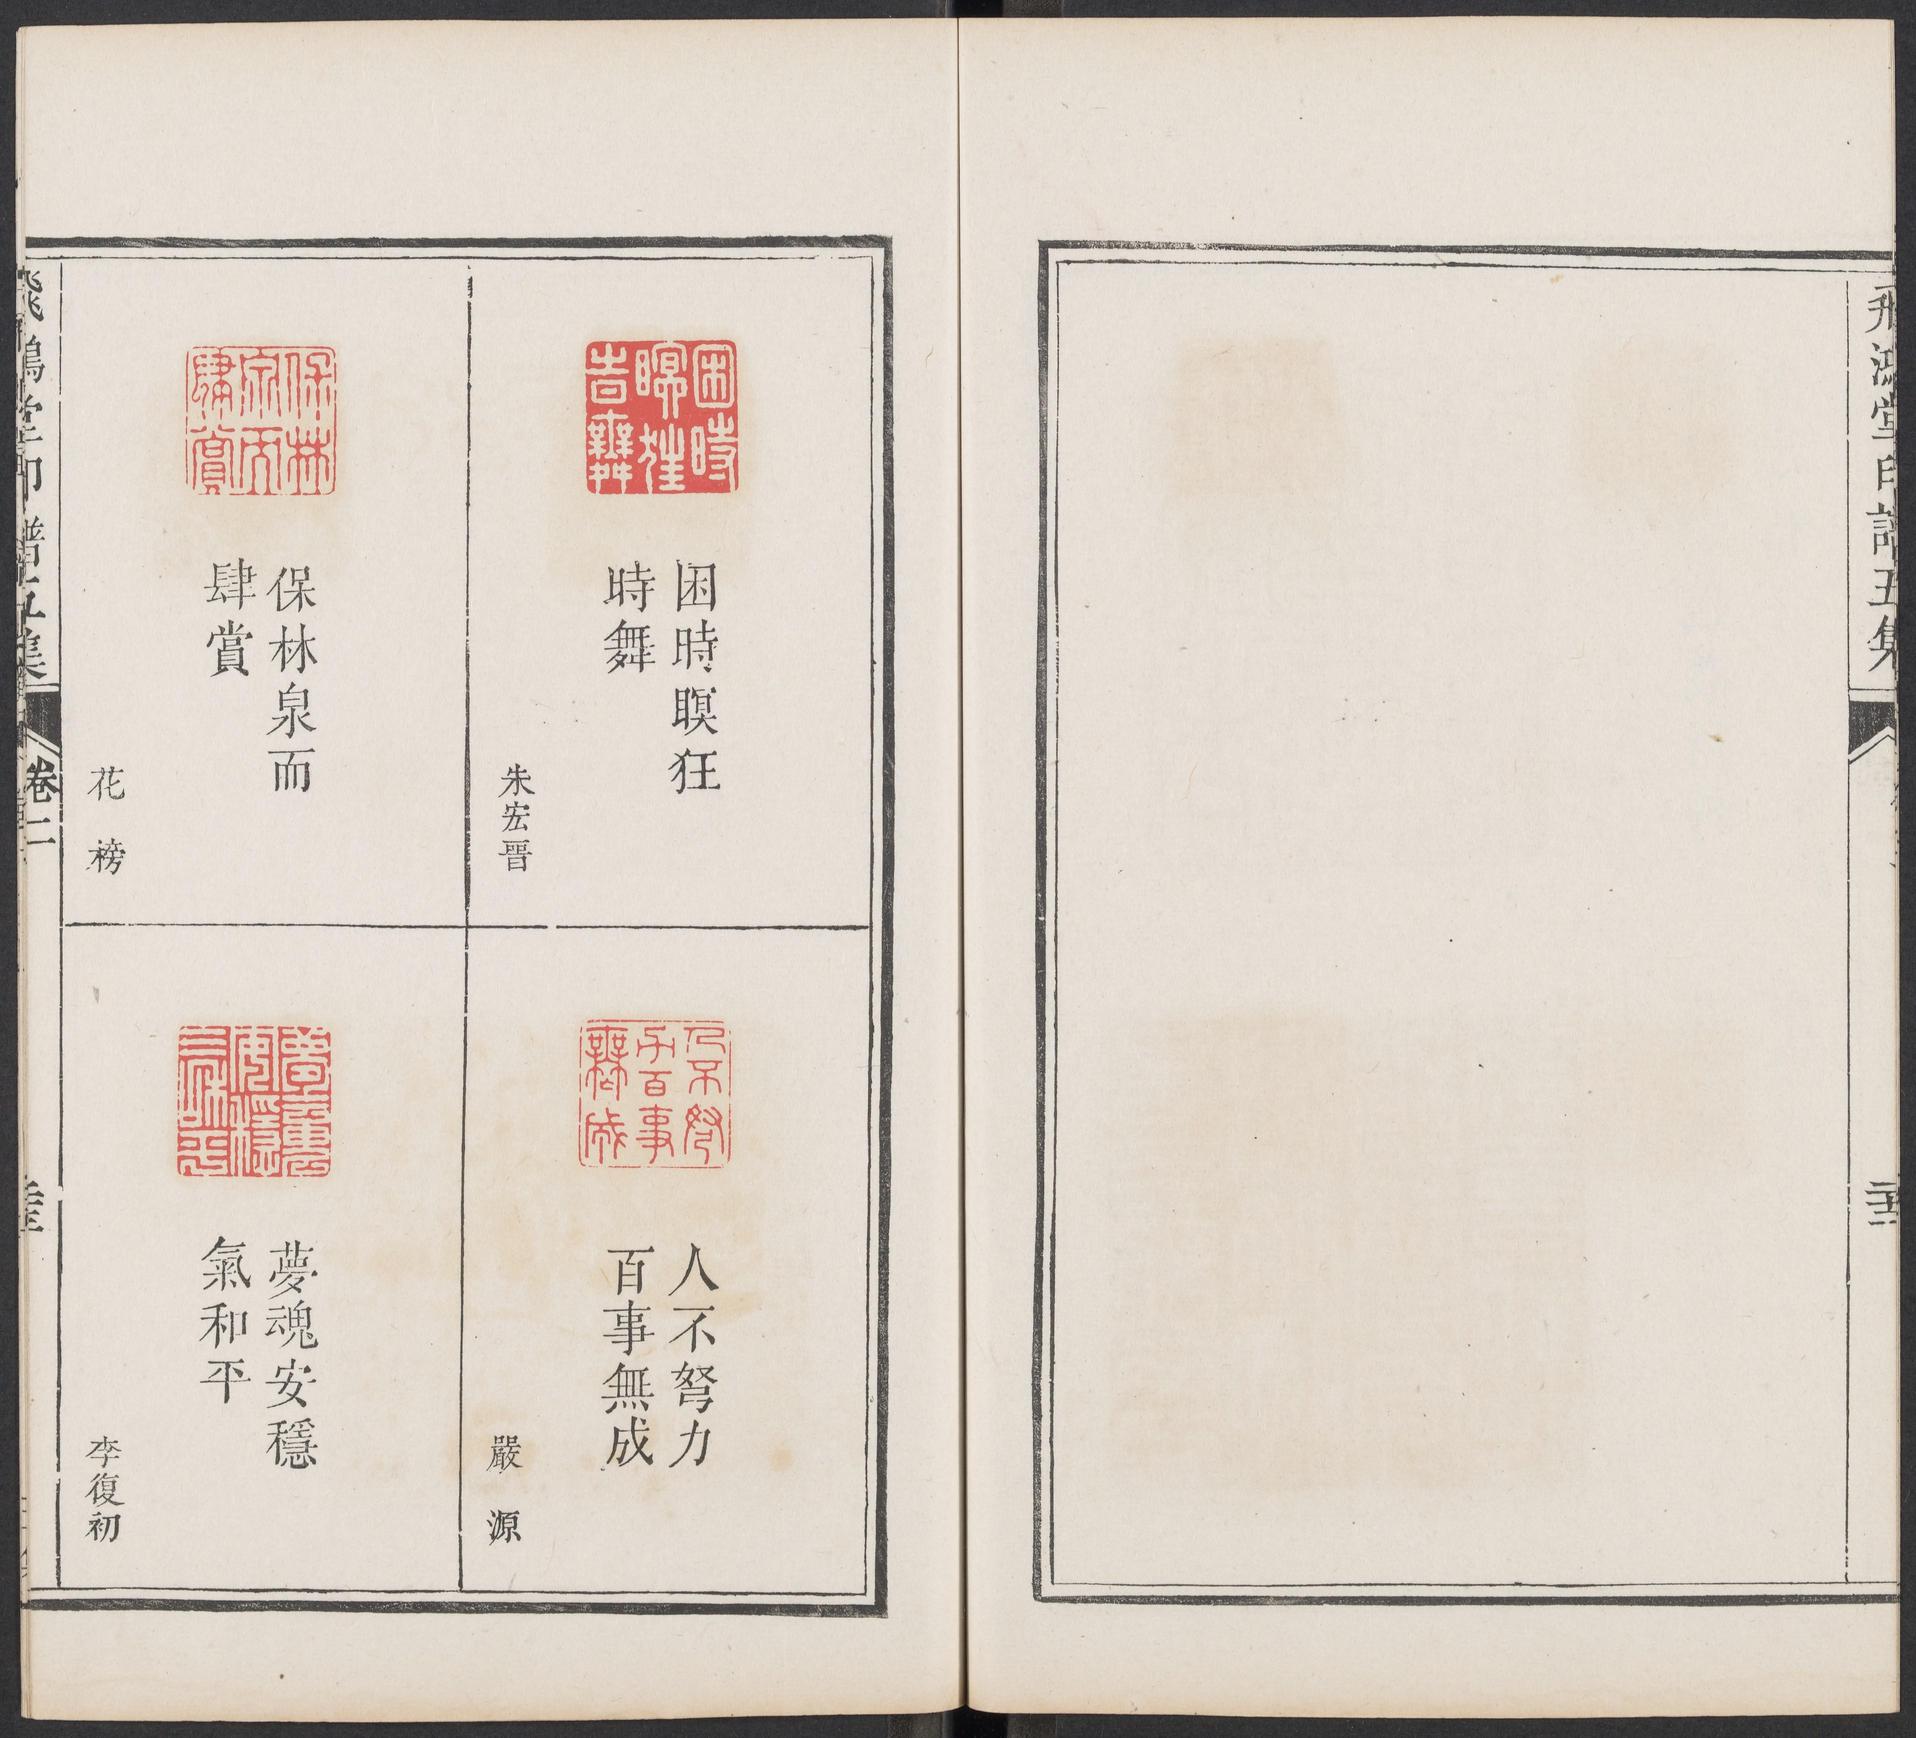 飛鴻堂印譜五集
困時瞑狂
時舞
朱宏晉
保林泉而
肆賞
花榜
人不努力
百事無成
嚴源
夢魂安穩
氣和平
李復初
飛鴻堂印譜五集
卷二